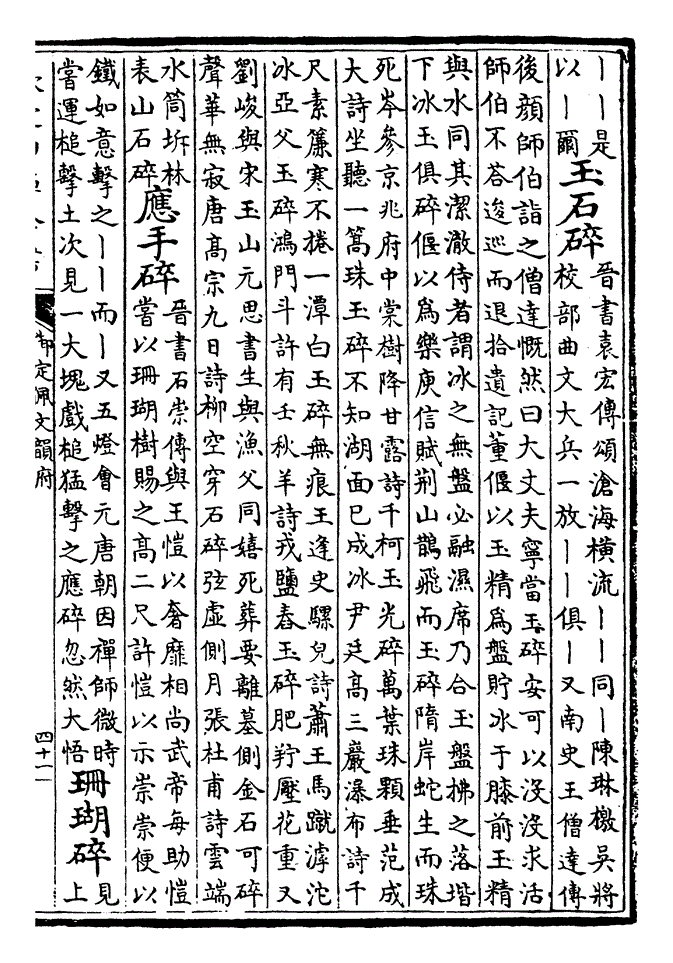 丨丨是
以丨爾
玉石碎
晉書袁宏傳頌滄海橫流丨丨同丨陳琳檄吳將
校部曲文大兵一放丨丨俱丨又南史王僧達傳
後顔師伯詣之僧達慨然曰大丈夫寧當玉碎安可以沒沒求活
師伯不荅逡巡而退拾遺記董偃以玉精為盤貯冰于膝前玉精
與水同其潔澈侍者謂冰之無盤必融濕席乃合玉盤拂之落堦
下冰玉俱碎偃以為樂庾信賦荆山鵲飛而玉碎隋岸蛇生而珠
死岑參京兆府中棠樹降甘露詩千柯玉光碎萬葉珠顆垂范成
大詩坐聽一篙珠玉碎不知湖面已成冰尹廷高三巖瀑布詩千
尺素簾寒不捲一潭白玉碎無痕王逢史騾兒詩蕭王馬蹴滹沱
冰亞父玉碎鴻門斗許有壬秋羊詩戎鹽舂玉碎肥羜壓花重又
劉峻與宋玉山元思書生與漁父同嬉死葬要離墓側金石可碎
聲華無寂唐高宗九日詩柳空穿石碎弦虛側月張杜甫詩雲端
水筒坼林
表山石碎
應手碎
晉書石崇傳與王愷以奢靡相尚武帝每助愷
嘗以珊瑚樹賜之高二尺許愷以示崇崇便以
鐵如意擊之丨丨而丨又五燈會元唐朝因禪師微時
嘗運槌擊土次見一大塊戲槌猛擊之應碎忽然大悟
珊瑚碎
見
上
御定佩文韻府
四十